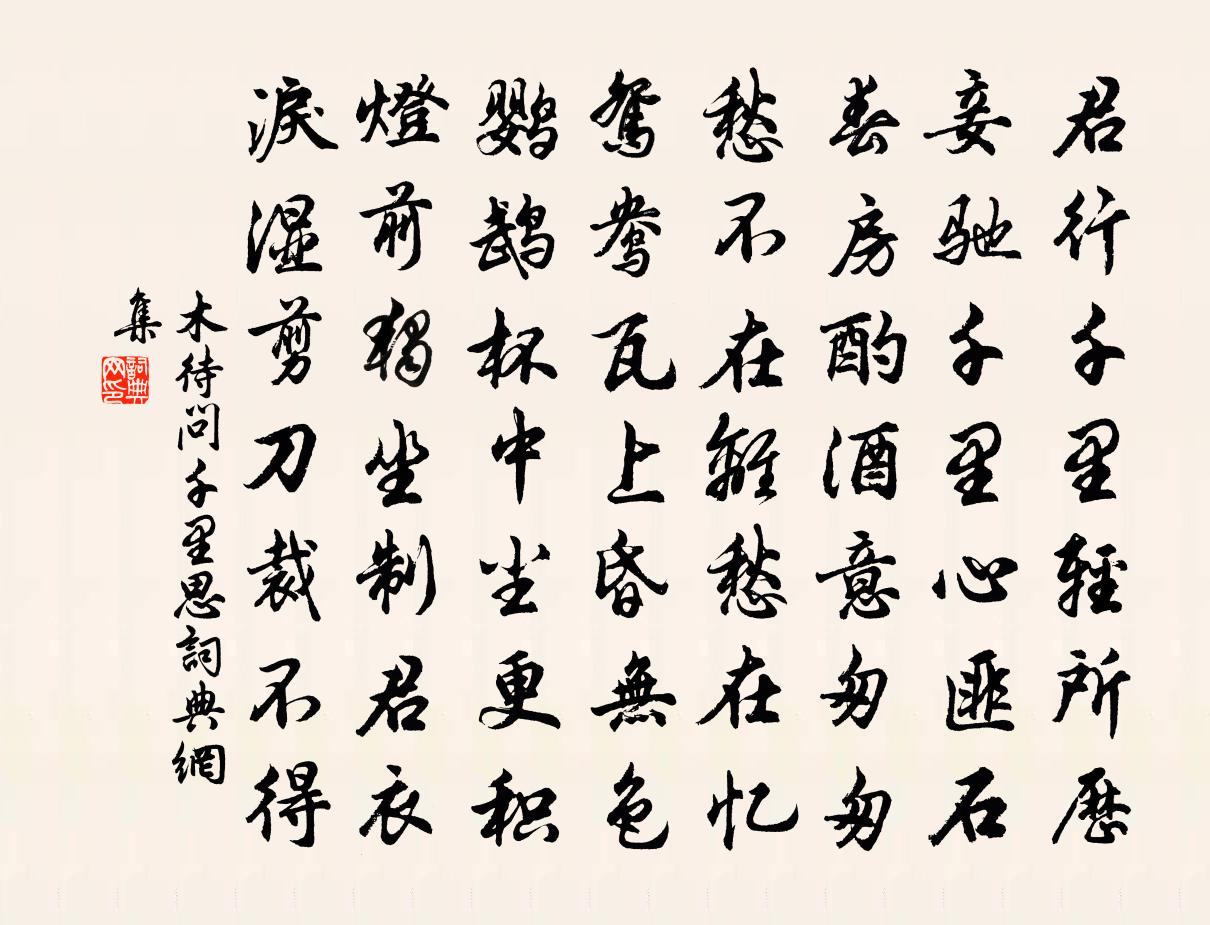 君行千里輕所歷
妾馳千里心匪石
春房酌酒意匆匆
愁不在離愁在忆
鴛鴦瓦上昏無色
鹦鹉杯中尘更积
燈前獨坐制君衣
淚濕剪刀裁不得
木待問千里思詞典網
集
詞典
网印